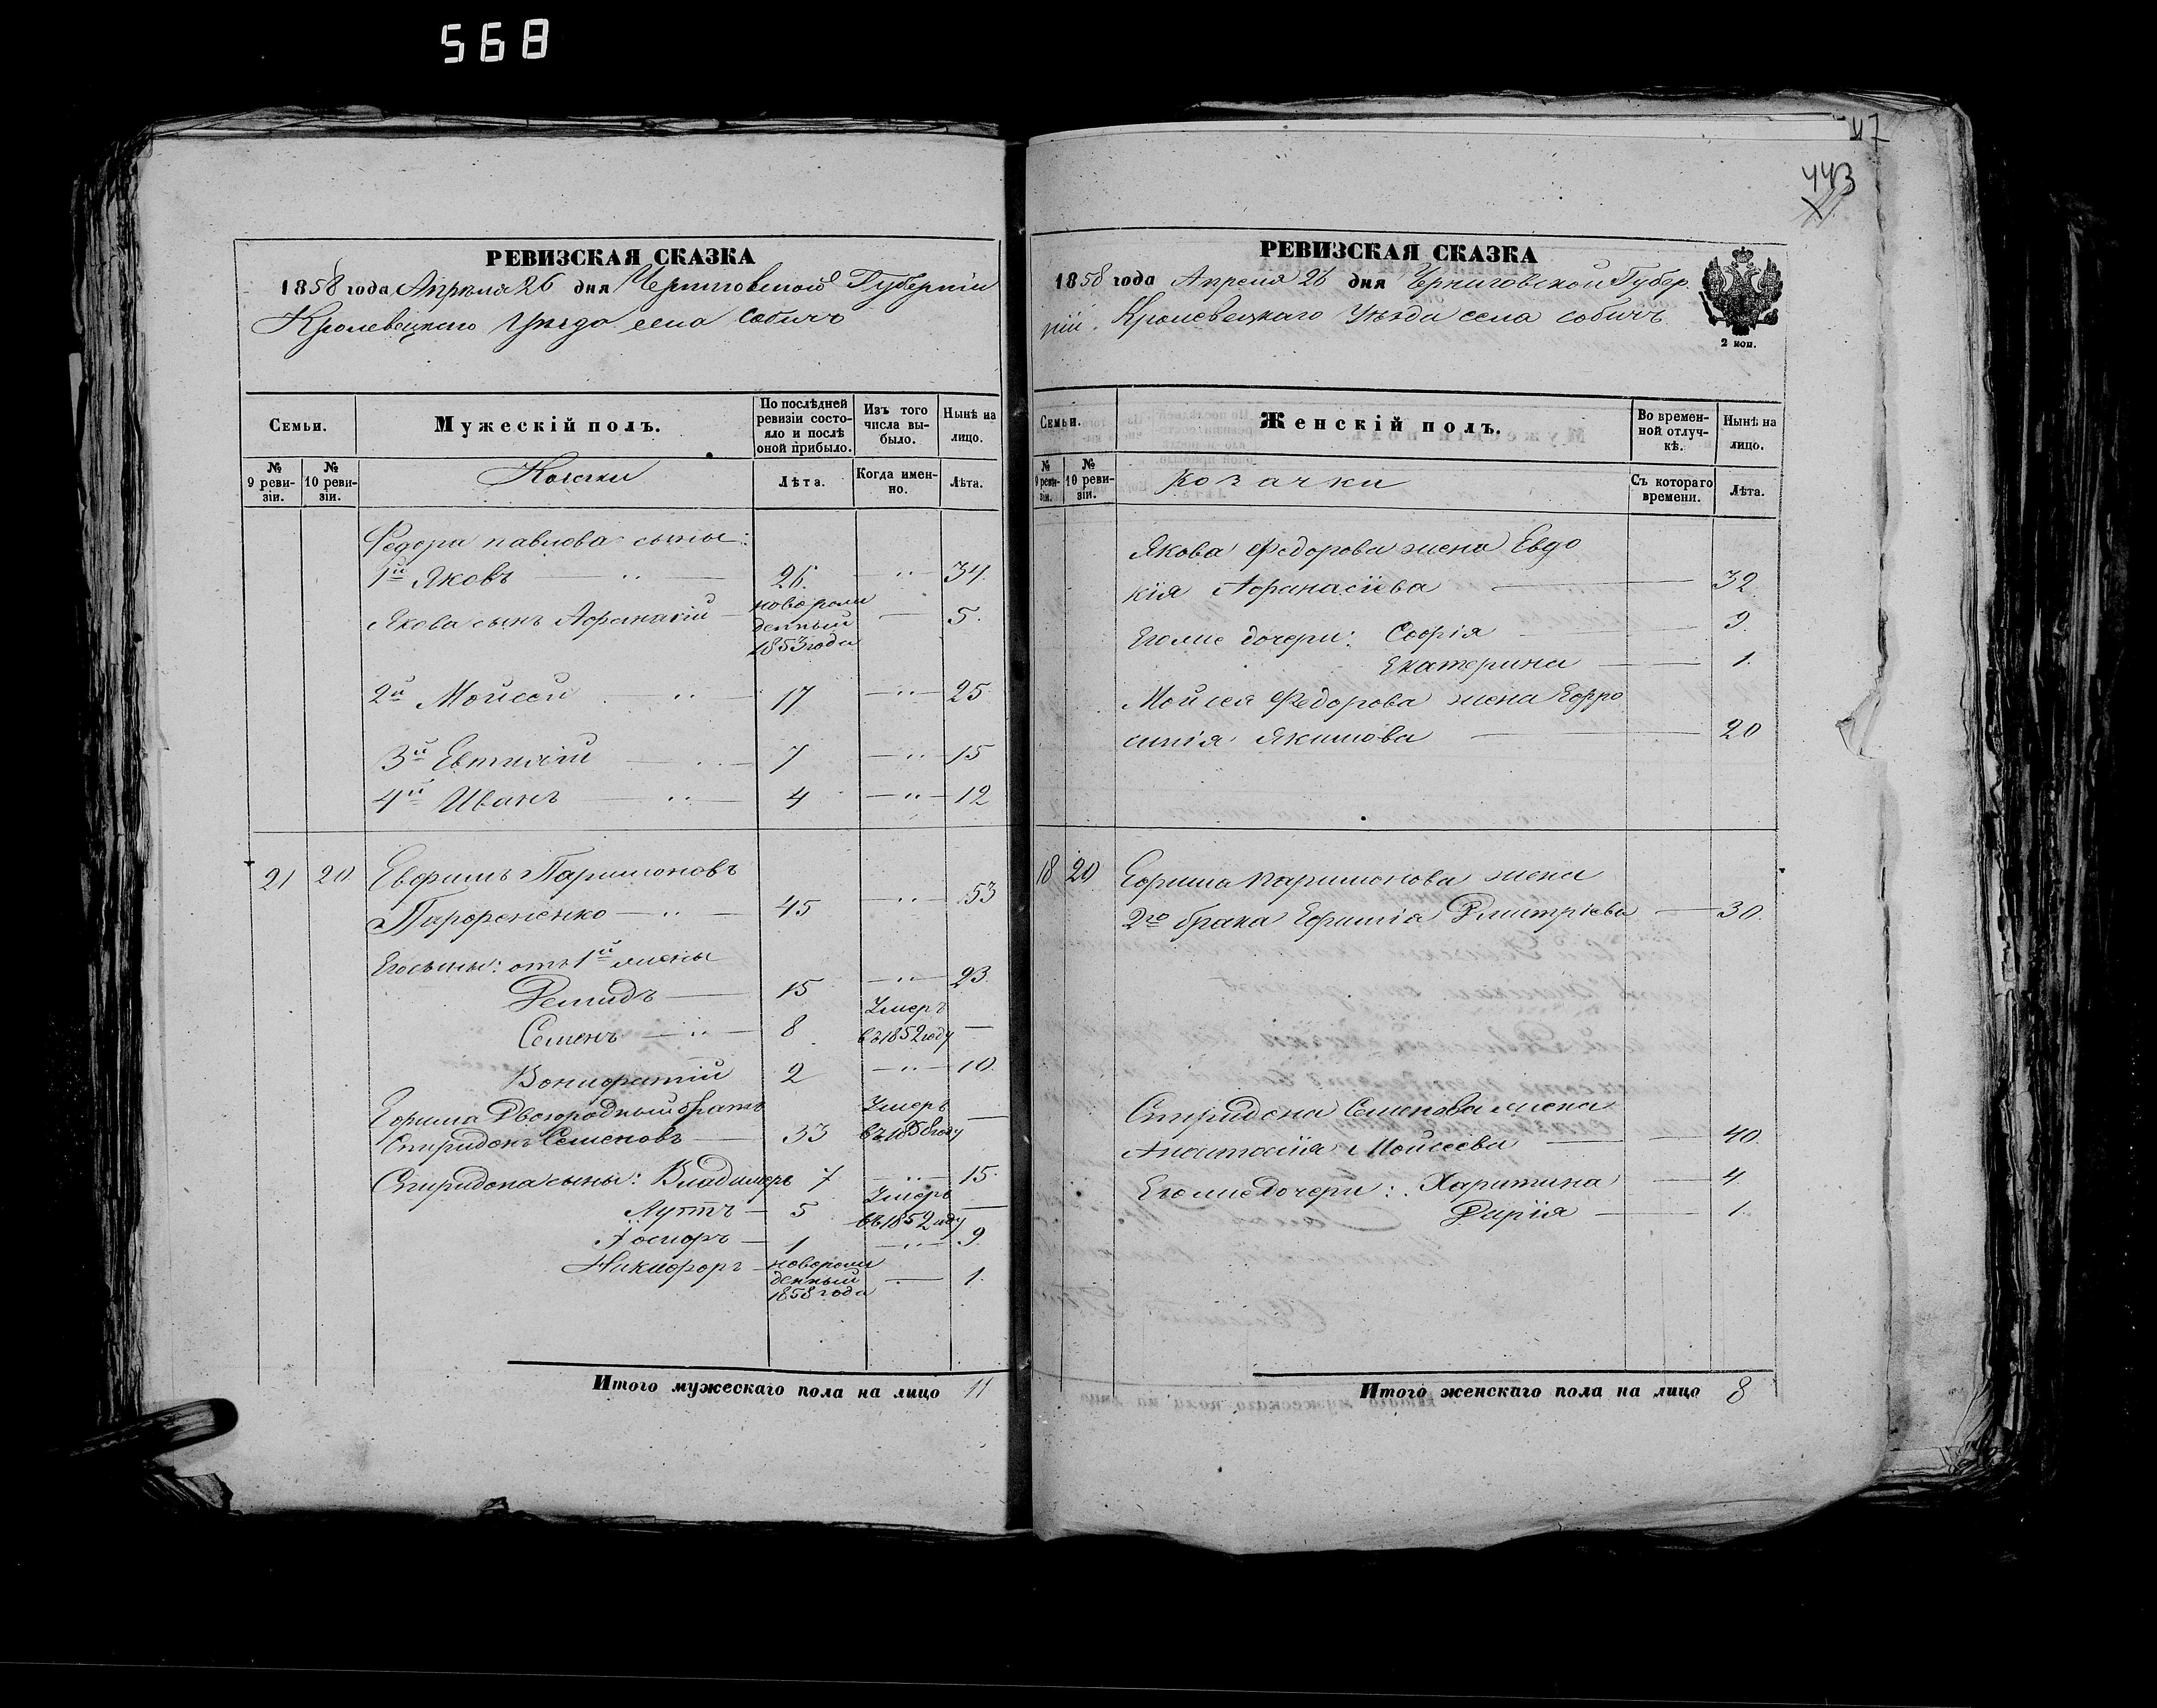 568
РЕВИЗСКАЯ СКАЗКА
1858 года Апрѣля 26 дня Черниговской Губерніи
Кролевецкаго Уѣзда села Собичъ
Семьи.
Мужескій полъ.
По послѣдней ревизіи состояло и послѣ оной прибыло.
Изъ того числа выбыло.
Нынѣ на лицо.
№ 9 ревизіи.
№ 10 ревизіи.
Козаки
Лѣта.
Когда именно.
Лѣта.
Федора павлова сыны:
1й Яковъ 26 34
Якова сынъ Афанасій новорожденный 1853 года 5.
2й Мойсей 17 25
3й Евтихій 7 15
4й Иванъ 4 12
21 20 Евфимъ Паримоновъ
Парфененко 45 53
Его сыны: отъ 1й жены
Демидъ 15 23.
Семенъ 8 Умеръ въ 1852 году
Вонифатій 2 10
Ефима Двоюродный братъ
Спиридонъ Семеновъ 33 Умеръ въ 1858 году
Спиридона сыны: Владимеръ 7 15
Луппъ 5 Умеръ въ 1852 году
Іосифъ 1 9
Никифоръ новорожденный 1858 года 1.
Итого мужескаго пола на лицо 11
117
443
РЕВИЗСКАЯ СКАЗКА
1858 года Апреля 26 дня Черниговской Губер
ніи. Кролевецкаго Уѣзда села собичъ
2 коп.
Семьи.
Женскій полъ.
Во временной отлучкѣ.
Нынѣ на лицо.
№ 9 ревизіи.
№ 10 ревизіи.
козачки
Съ котораго времени.
Лѣта.
Якова Федорова жена Евдо
кія Афанасіева 32
Его же дочери: Софія 9
Екатерина 1.
Мойсея Федорова жена Ефро
синія Якимова 20
18 20 Ефима паримонова жена
2го брака Ефимія Дмитріева 30.
Спиридона Семенова жена
Анастасія Мойсеева 40
Его же Дочери: Харитина 4
Дарія 1.
Итого женскаго пола на лицо 8